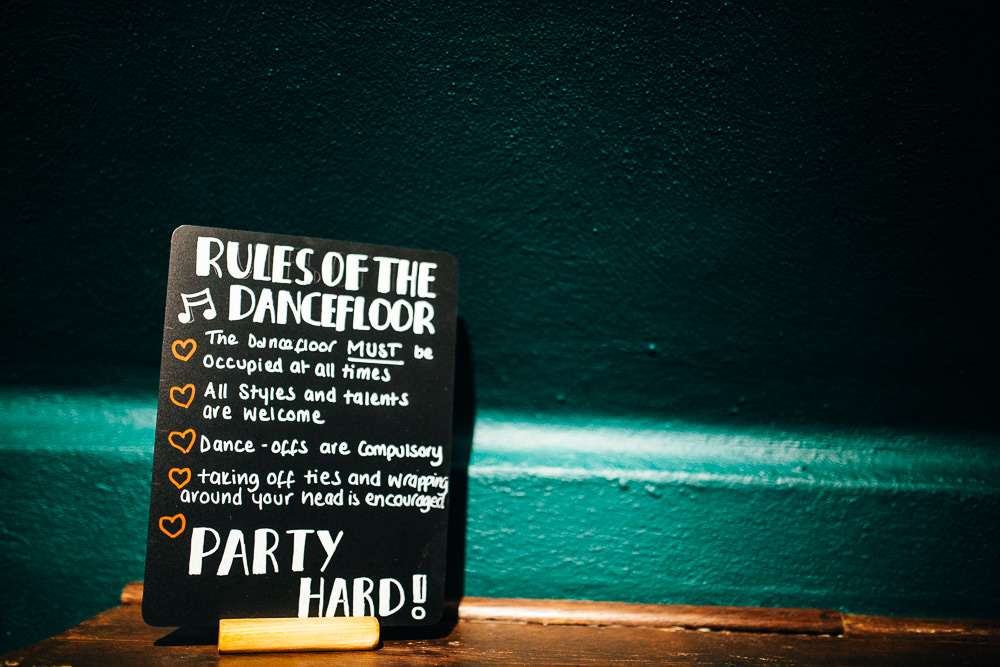 RULES OF THE
DANCEFLOOR
The Dancefloor MUST be
Occupied at all times
All Styles and talents
are Welcome
Dance-offs are Compulsory
taking off ties and wrapping
around your head is encouraged
PARTY
HARD!